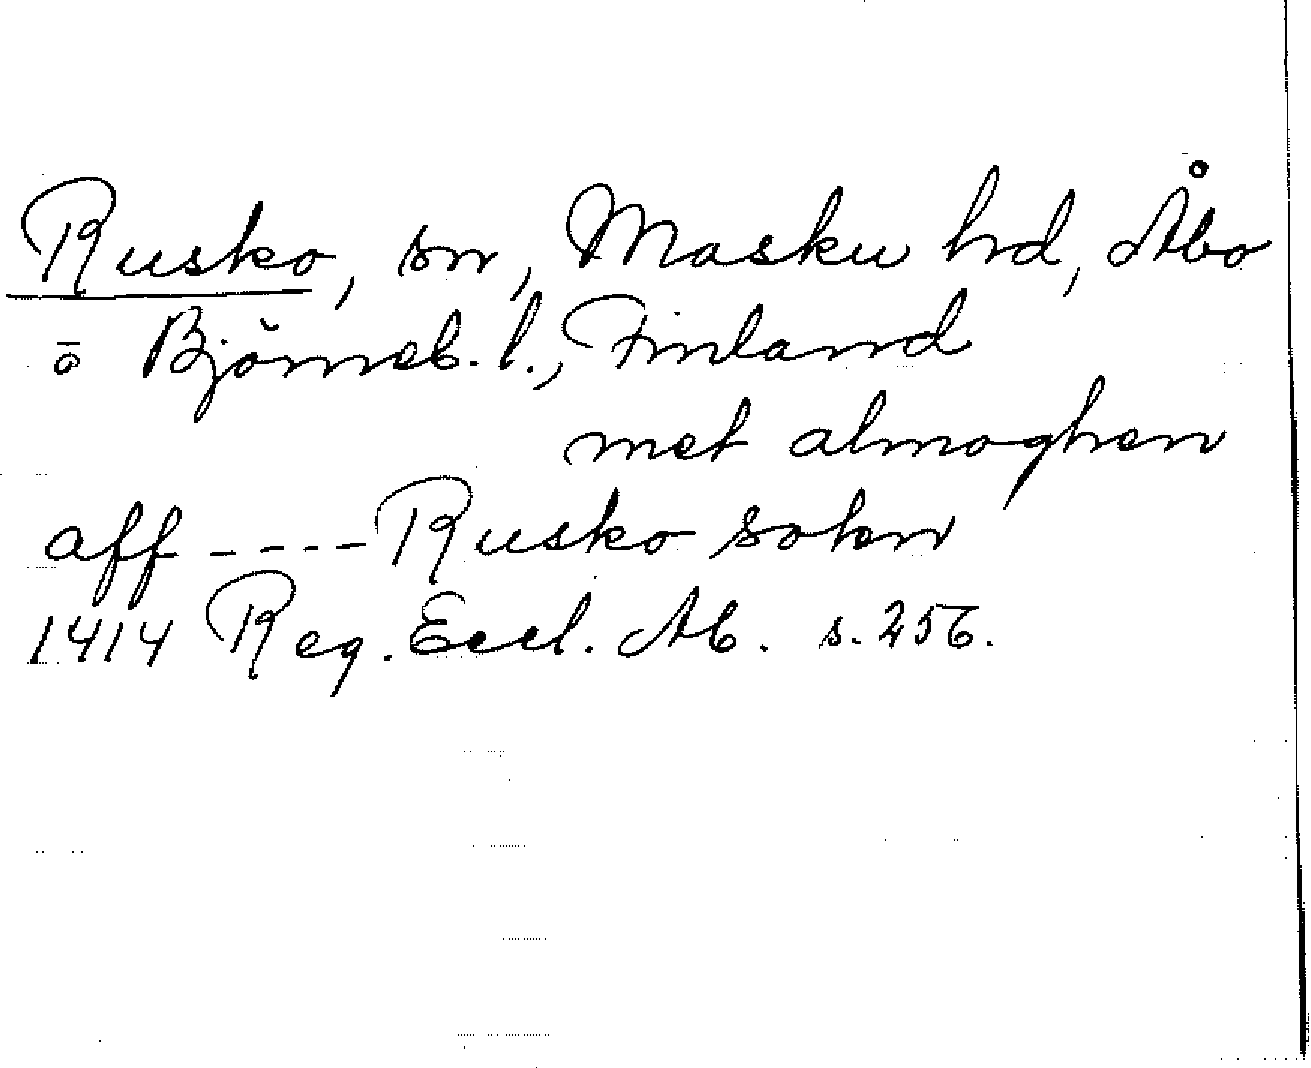 Rusko, sn, Masku hd, Åbo
o Björneb. l., Finland
met almoghen
aff ---- Rusko sokn
1414 Reg. Eccl. Ab. s. 256.